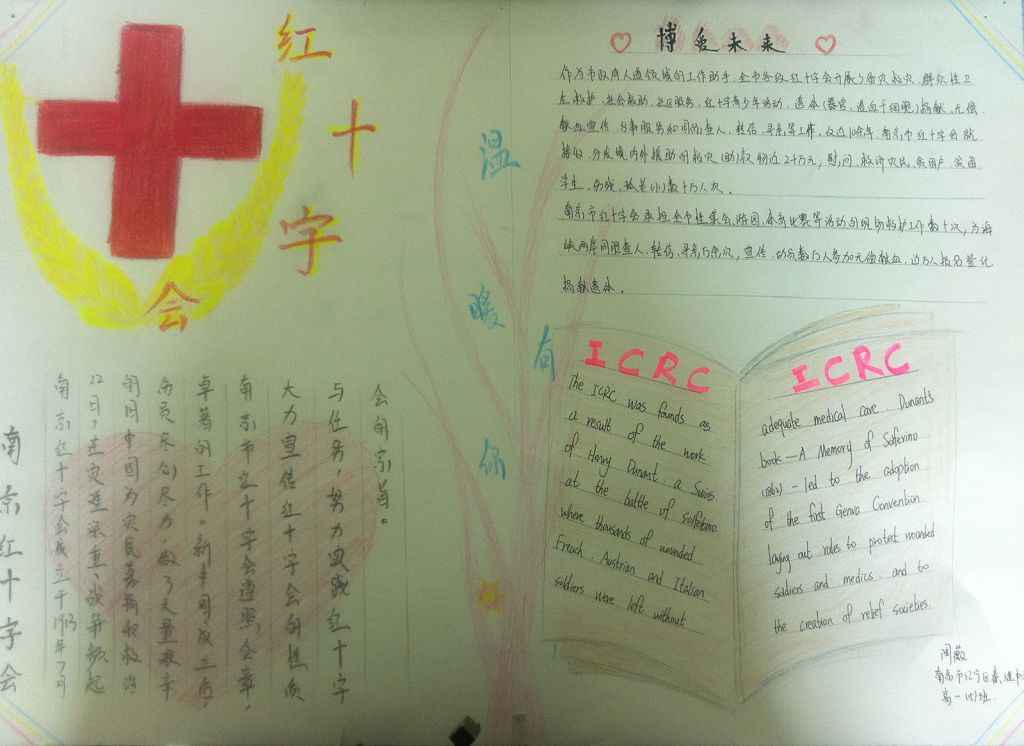 红
十
字
会
温
暖
有
你
博爱未来
作为市政府人道领域的工作助手,全市各级红十字会开展了备灾救灾、群众性卫
生救护、社会救助、社区服务、红十字青少年活动、遗体(器官、造血干细胞)捐献、无偿
献血宣传、台事服务和同胞查人、转信、寻亲等工作。仅近10余年,南京市红十字会就
接收、分发境内外援助的救灾(助)款物近2千万元,慰问、救济灾民、贫困户、贫困
学生、伤残、孤老(儿)数十万人次。
南京市红十字会承担全市性集会、游园、体育比赛等活动的现场救护工作数十次,为海
峡两岸同胞查人、转信、寻亲万余次,宣传、动员数万人参加无偿献血,近万人报名登记
捐献遗体。
ICRC
The ICRC was founds as
a result of the work
of Henry Dunant. a Swiss.
at the battle of solfetino.
where thousands of wounded
French. Austrian and Italian
soldiers were left without
ICRC
adequate medical care. Dunant's
book—A Memory of Solferino
(1862) - led to the adoption
of the first Genva Convention
laying out rules to protect wounded
soldiers and medics and to
the creation of relief societies.
南京红十字会
南京红十字会成立于1913年7月
22日,在灾难深重、战异频起
的旧中国为灾民募捐和救治
伤员尽心尽力,做了大量艰辛
卓著的工作。新中国成立后,
南京市红十字会遵照会章,
大力宣传红十字会的性质
与任务,努力实践红十字
会的宗旨。
陶薇
高一(5)班